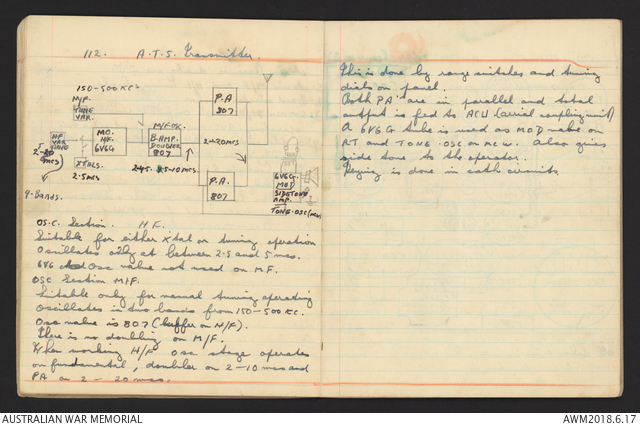 112. A.T.5 Transmitter.
150-500 KCS
M/F.
TUNE
VAR.
HF
VAR
TUNE
2-20
MCS
9. Bands.
XTALS.
2.5 MCS
M.O.
H.F.
6V6G
M/F OSC.
B. AMP.
DOUBLER
807
P.A
807
2-20 MCS
P.A.
807
6V6G.
MOD
SIDETONE
AMP.
TONE-OSC (MCW)
OSC. Section. H.F.
Suitable for either Xtal or tuning operation
Oscillates only at between 2.5 and 5 mcs.
6V6 Osc valve not used on M.F.
OSC Section M/F.
Suitable only for manual tuning operating
Oscillates in two bands from 150-500 KC.
Osc valve is 807 (buffer on H/F).
There is no doubling on M/F.
When working H/F Osc stage operates
on fundamental, doubler on 2-10 mcs and
PA on 2-20 mcs.
This is done by range switches and tuning
dials on panel.
Both PA's are in parallel and total
output is fed to ACU (aerial coupling unit)
A 6V6G tube is used as MOD valve on
RT and TONE-OSC on MCW. Also gives
side tone to the operator.
Keying is done in cath circuits.
AUSTRALIAN WAR MEMORIAL
AWM2018.6.17